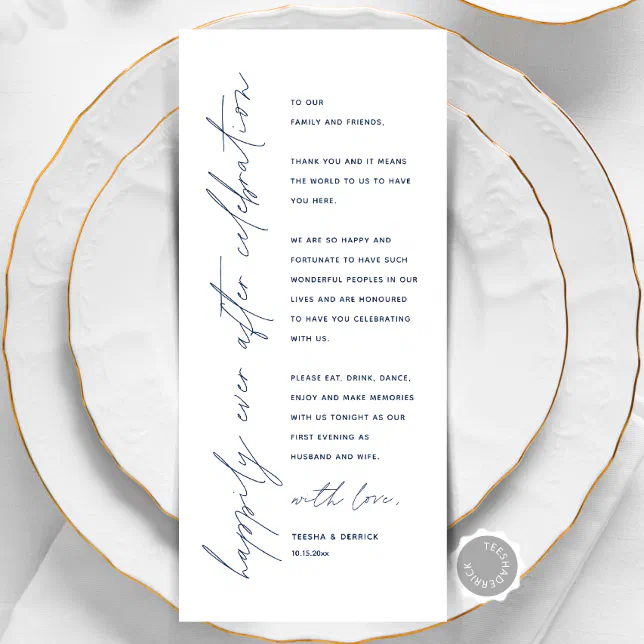 happily ever after celebration
TO OUR
FAMILY AND FRIENDS,
THANK YOU AND IT MEANS
THE WORLD TO US TO HAVE
YOU HERE.
WE ARE SO HAPPY AND
FORTUNATE TO HAVE SUCH
WONDERFUL PEOPLES IN OUR
LIVES AND ARE HONOURED
TO HAVE YOU CELEBRATING
WITH US.
PLEASE EAT, DRINK, DANCE,
ENJOY AND MAKE MEMORIES
WITH US TONIGHT AS OUR
FIRST EVENING AS
HUSBAND AND WIFE.
with love,
TEESHA & DERRICK
10.15.20xx
TEESHADERRICK